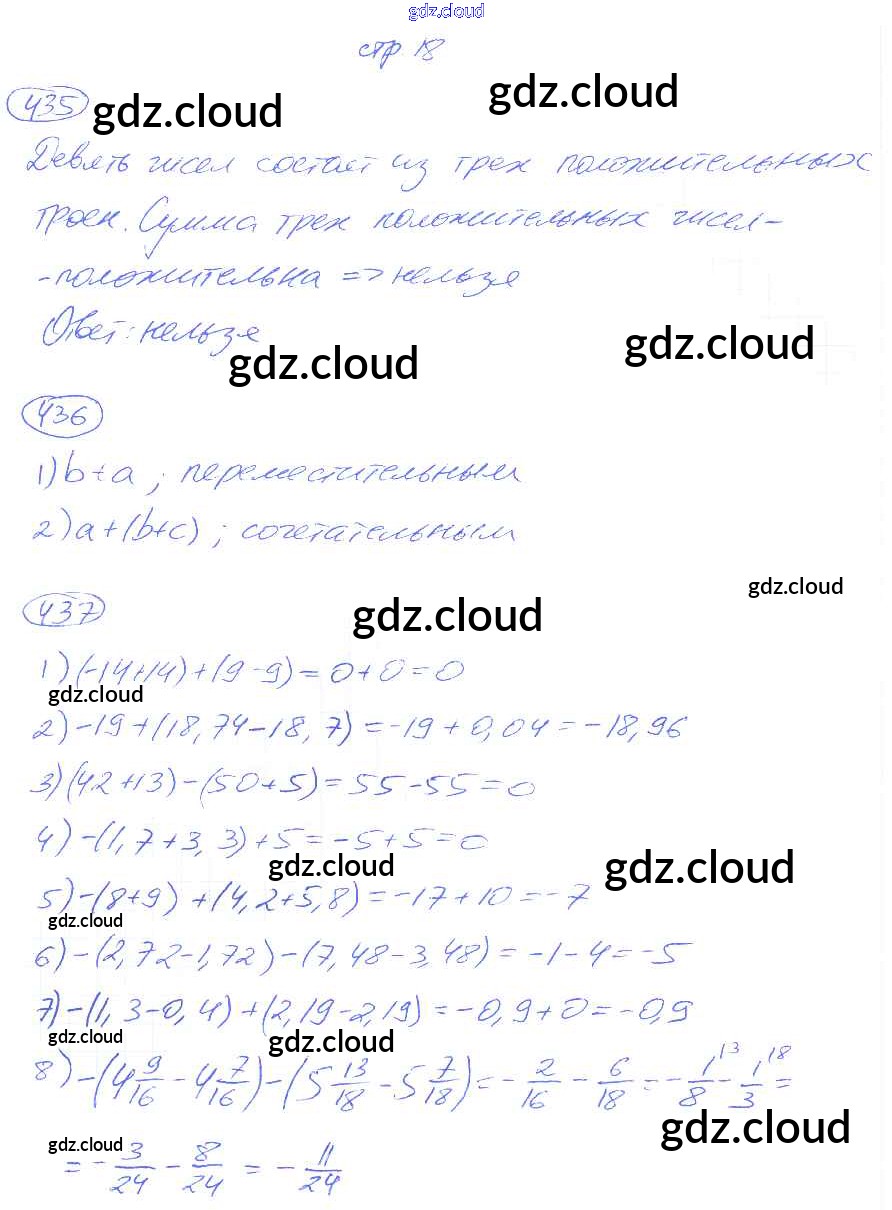 gdz.cloud
стр. 18
435 gdz.cloud gdz.cloud
Девять чисел состоят из трех положительных
троек. Сумма трех положительных чисел -
- положительна => нельзя
Ответ: нельзя
gdz.cloud gdz.cloud
436
1) b+a ; переместительным
2) a+(b+c) ; сочетательным
gdz.cloud
437 gdz.cloud
1) (-14+14)+(9-9)=0+0=0
gdz.cloud
2) -19+(18,74-18,7)=-19+0,04=-18,96
3) (42+13)-(50+5)=55-55=0
4) -(1,7+3,3)+5=-5+5=0
gdz.cloud gdz.cloud
5) -(8+9)+(4,2+5,8)=-17+10=-7
gdz.cloud
6) -(2,72-1,72)-(7,48-3,48)=-1-4=-5
7) -(1,3-0,4)+(2,19-2,19)=-0,9+0=-0,9
gdz.cloud gdz.cloud
8) -(4 9/16 - 4 7/16)-(5 13/18 - 5 7/18)=- 2/16 - 6/18 =- 1/8 \3 - 1/3 \8 =
gdz.cloud gdz.cloud
=- 3/24 - 8/24 = - 11/24